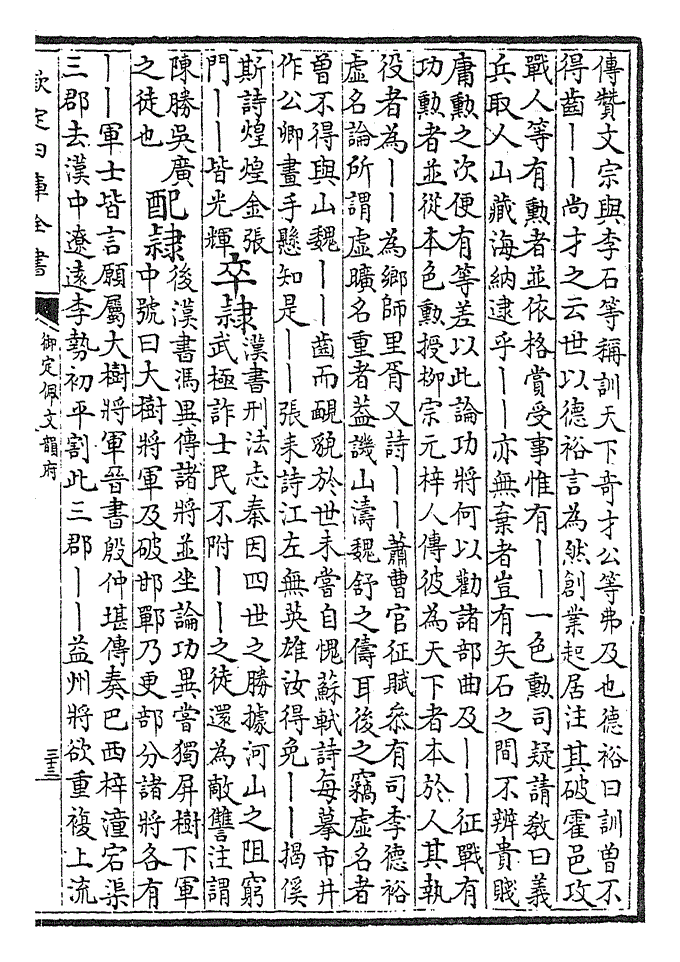 傳贊文宗與李石等稱訓天下奇才公等弗及也德裕曰訓曾不
得齒——尚才之云世以德裕言為然創業起居注其破霍邑攻
戰人等有勲者並依格賞受事惟有——一色勲司疑請敎曰義
兵取人山藏海納逮乎——亦無棄者豈有矢石之間不辨貴賤
庸勲之次便有等差以此論功將何以勸諸部曲及——征戰有
功勲者並從本色勲授柳宗元梓人傳彼為天下者本於人其執
役者為——為鄉師里胥又詩——蕭曹官征賦叅有司李德裕
虚名論所謂虚曠名重者葢譏山濤魏舒之儔耳後之竊虚名者
曾不得與山魏——齒而靦貌於世未嘗自愧蘇軾詩每摹市井
作公卿畫手懸知是——張耒詩江左無英雄汝得免——揭傒
斯詩煌煌金張
門——皆光輝
卒隸
漢書刑法志秦因四世之勝據河山之阻窮
武極詐士民不附——之徒還為敵讐注謂
陳勝吳廣
之徒也
配隸
後漢書馮異傳諸將並坐論功異嘗獨屏樹下軍
中號曰大樹將軍及破邯鄲乃更部分諸將各有
——軍士皆言願屬大樹將軍晉書殷仲堪傳奏巴西梓潼宕渠
三郡去漢中遼遠李勢初平割此三郡——益州將欲重複上流
欽定四庫全書
御定佩文韻府
三十三